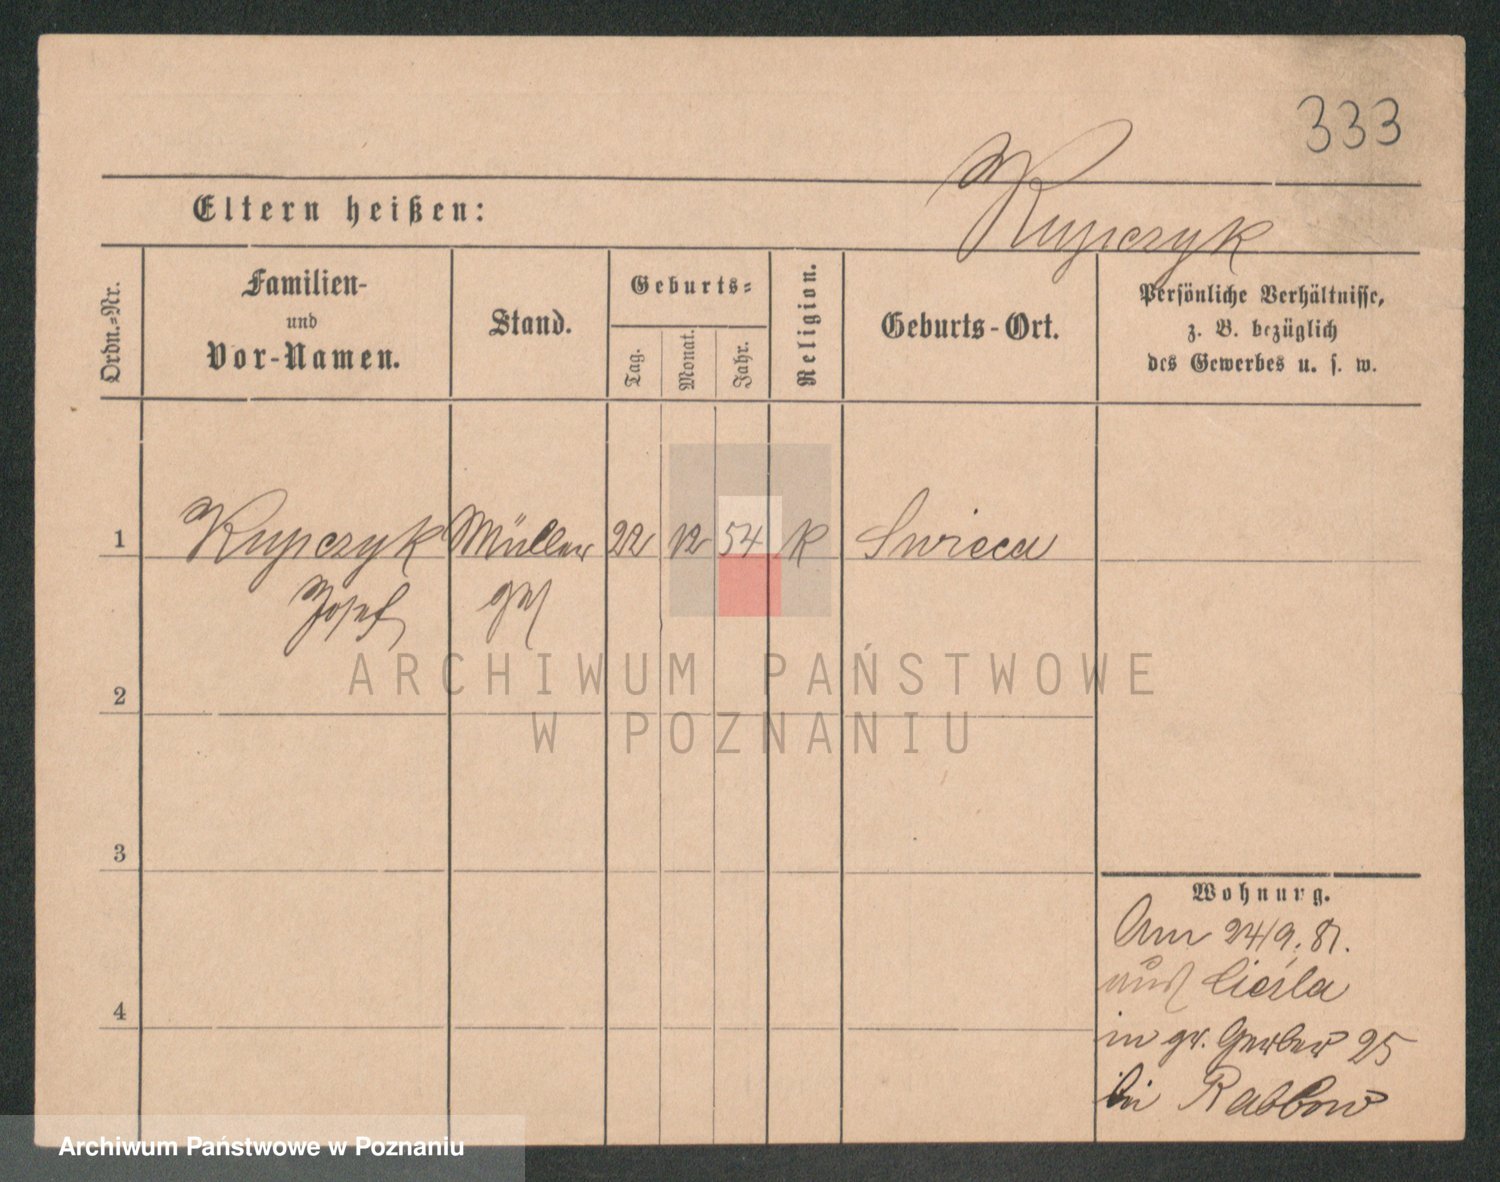 333
Kupczyk
Eltern heißen:
Ordn.=Nr.
Familien-
und
Vor-Namen.
Stand.
Geburts=
Tag.
Monat.
Jahr.
Religion.
Geburts-Ort.
Persönliche Verhältnisse,
z. B. bezüglich
des Gewerbes u. s. w.
1 Kupczyk Müller 22 12 54 K
Josef
2
3
4
Wohnung.
Am 24/9. 81.
aus Cieśla
in gr. Gerber 25
bei Rabbow
ARCHIWUM PAŃSTWOWE
W POZNANIU
Archiwum Państwowe w Poznaniu